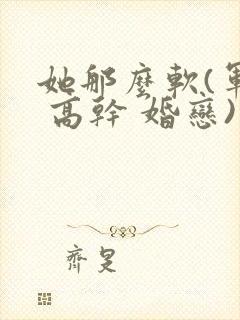 她那麼軟(軍
高幹 婚戀)
齊是